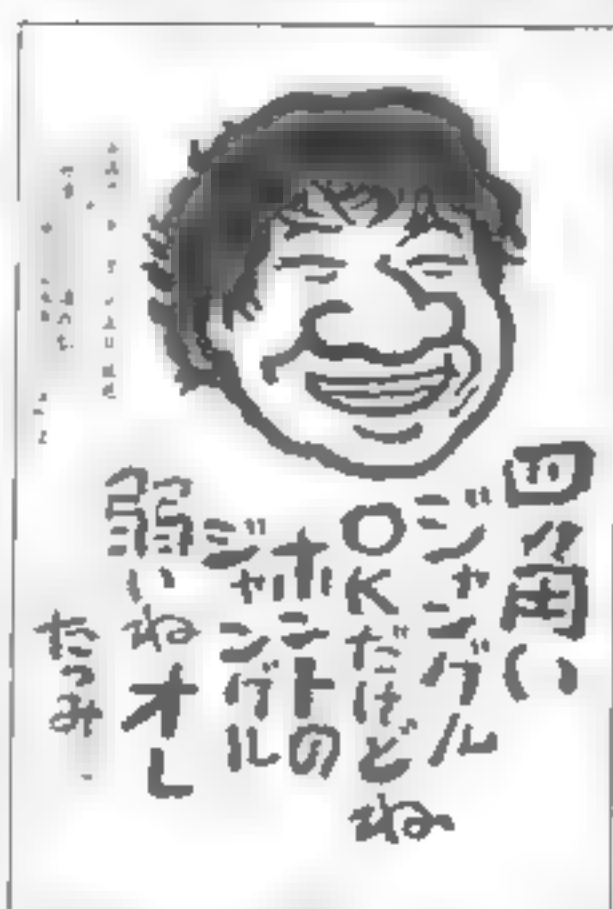 四角い
ジャングル
OKだけどね
ホントの
ジャングル
弱いねオレ
たつみ